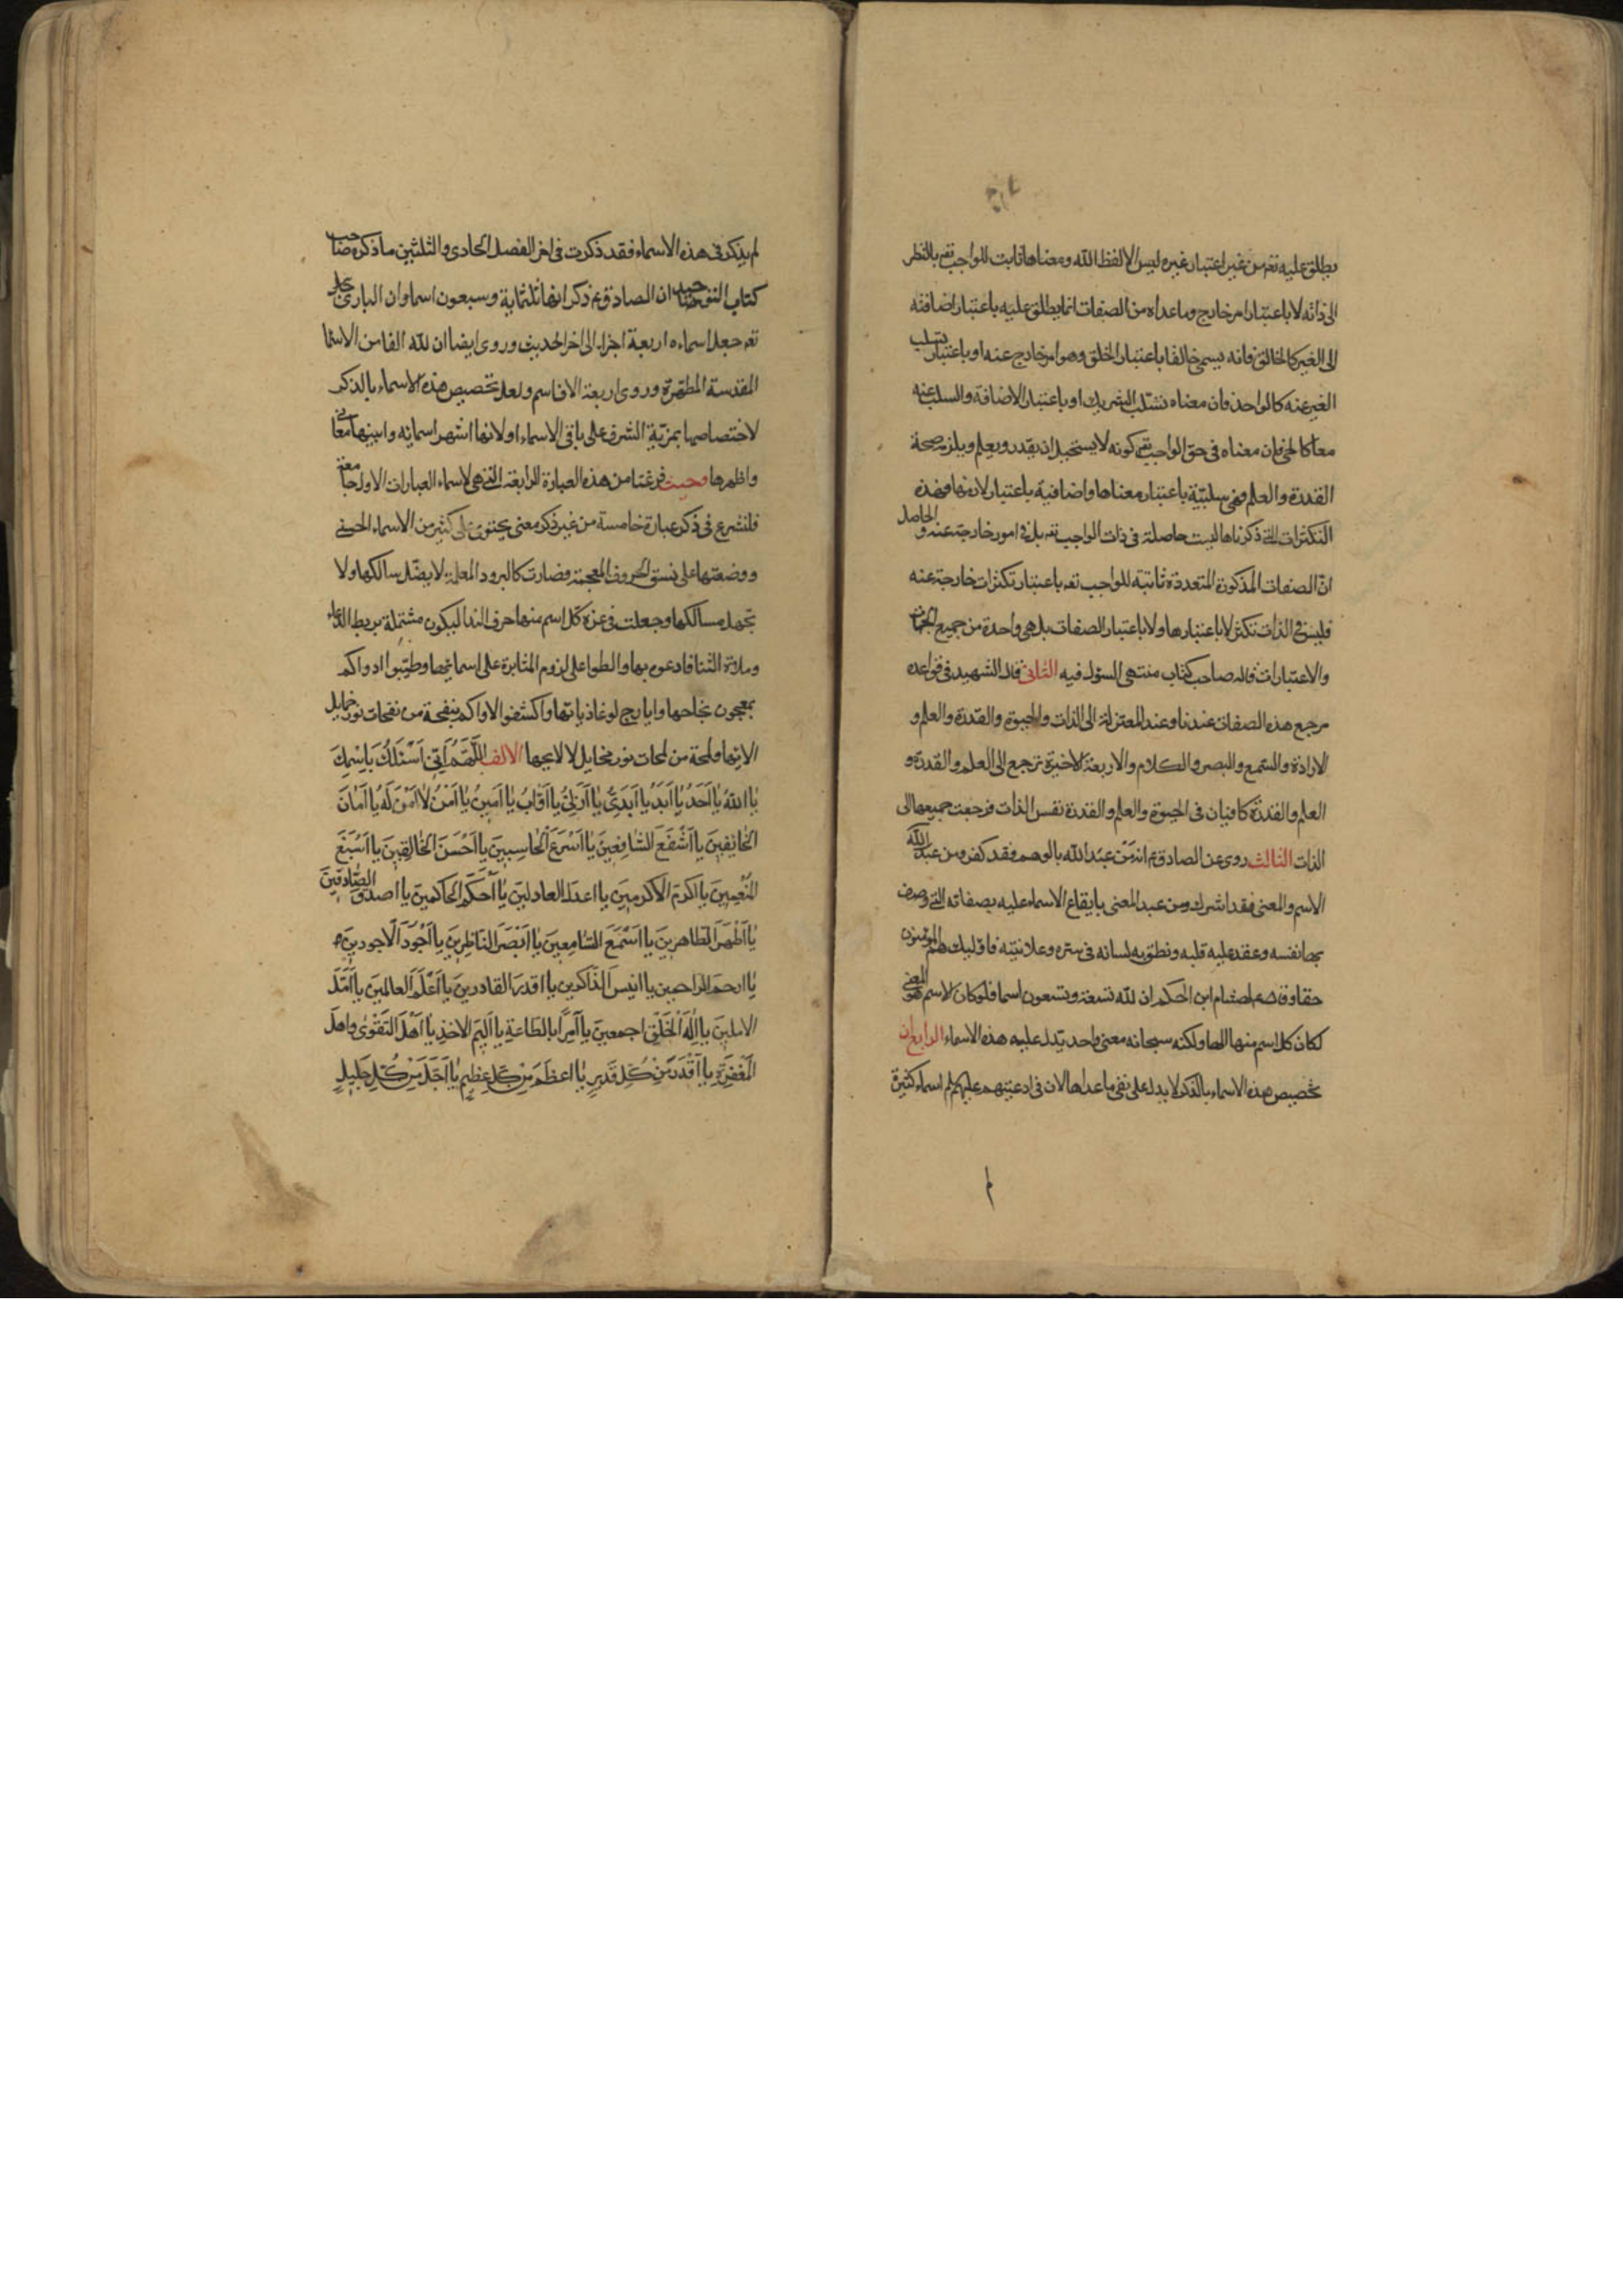 يطلق عليه تعم من غير اعتبار غيره ليس الا لفظ الله ومعناها ثابت للواجب تعم بالنظر
الى ذاته لا باعتبار امر خارج وما عداه من الصفات انما يطلق عليه باعتبار اضافته
الى الغير كالخالق فانه يسمى خالقا باعتبار الخلق وهو امر خارج عنه او باعتبار سلب
الغير عنه كالواحد فان معناه سلب الشريك او باعتبار الاضافة والسلب عنه
معا كالحى فان معناه فى حق الواجب تعم كونه لا يستحيل ان يقدر ويعلم ويلزمه صحة
القدرة والعلم فهى سلبية باعتبار معناها واضافية باعتبار لازمها وهذه
التكثرات التى ذكرناها ليست حاصلة فى ذات الواجب تعم بل فى امور خارجة عنه والحاصل
ان الصفات المذكورة المتعددة ثابتة للواجب تعم باعتبار تكثرات خارجة عنه
فليس فى الذات تكثر لا باعتبارها ولا باعتبار الصفات بل هى واحدة من جميع الجهات
والاعتبارات قاله صاحب كتاب منتهى السؤل فيه الثانى قال الشهيد فى قواعده
مرجع هذه الصفات عندنا وعند المعتزلة الى الذات والحيوة والقدرة والعلم و
الارادة والسمع والبصر والكلام والاربعة الاخيرة ترجع الى العلم والقدرة و
العلم والقدرة كافيان فى الحيوة والعلم والقدرة نفس الذات فرجعت جميعها الى
الذات الثالث روى عن الصادق ع انه من عبد الله بالوهم فقد كفر ومن عبد
الاسم والمعنى فقد اشرك ومن عبد المعنى بايقاع الاسماء عليه بصفاته التى وصف
بها نفسه وعقد عليه قلبه ونطق به لسانه فى سره وعلانيته فاولئك هم المؤمنون
حقا وقال ع لهشام ابن الحكم ان لله تسعة وتسعون اسما فلو كان الاسم هو المعنى
لكان كل اسم منها الها ولكنه سبحانه معنى واحد يدل عليه هذه الاسماء الرابع ان
تخصيص هذه الاسماء بالذكر لا يدل على نفى ما عداها لان فى ادعيتهم عليهم لم اسماء كثيرة
لم يذكر فى هذه الاسماء فقد ذكرت فى اخر الفصل الحادى والثلثين ما ذكره صاحب
كتاب التوحيد ان الصادق ع ذكر انها ثلثماية وسبعون اسما وان البارى
تعم جعل اسماءه اربعة اجزاء الى اخر الحديث وروى ايضا ان لله الفا من الاسما
المقدسة المطهرة وروى اربعة الاف اسم ولعل تخصيص هذه الاسماء بالذكر
لاختصاصها بمزية الشرف على باقى الاسماء او لانها اشهر اسمائه وابينها معانى
واظهرها وحيث فرغنا من هذه العبارة الرابعة التى هى لاسماء العبارات الاول جامعة
فلنشرع فى ذكر عبارة خامسة من غير ذكر معنى يحتوى على كثير من الاسماء الحسنى
ووضعتها على نسق الحروف المعجمة وصارت كالبرود المعلمة لا يضل سالكها ولا
تجهل مسالكها وجعلت فى غرة كل اسم منها حرف الندا ليكون مشتملة بربط الدعاء
وملاءة الثنا فادعوه بها والظوا على لزوم المثابرة على اسمائها وطيبوا ادواكم
بمعجون نجاحها واكشفوا لاواكم بنفحة من نفحات نور خمايل
الائها ولمحة من لمحات نور مخايل لالائها الالف اللهم انى اسئلك باسمك
يا الله يا احد يا ابد يا ابدى يا ازلى يا اواب يا امين يا امن لا امن له يا امان
الخائفين يا اشفع الشافعين يا اسرع الحاسبين يا احسن الخالقين يا اسبغ
المنعمين يا اكرم الاكرمين يا اعدل العادلين يا احكم الحاكمين يا اصدق الصادقين
يا اطهر الطاهرين يا اسمع السامعين يا ابصر الناظرين يا اجود الاجودين
يا ارحم الراحمين يا انيس الذاكرين يا اقدر القادرين يا اعلم العالمين يا امل
الاملين يا اله الخلق اجمعين يا آمرا بالطاعة يا اليم الاخذ يا اهل التقوى واهل
المغفرة يا اقدر من كل قدير يا اعظم من كل عظيم يا اجل من كل جليل